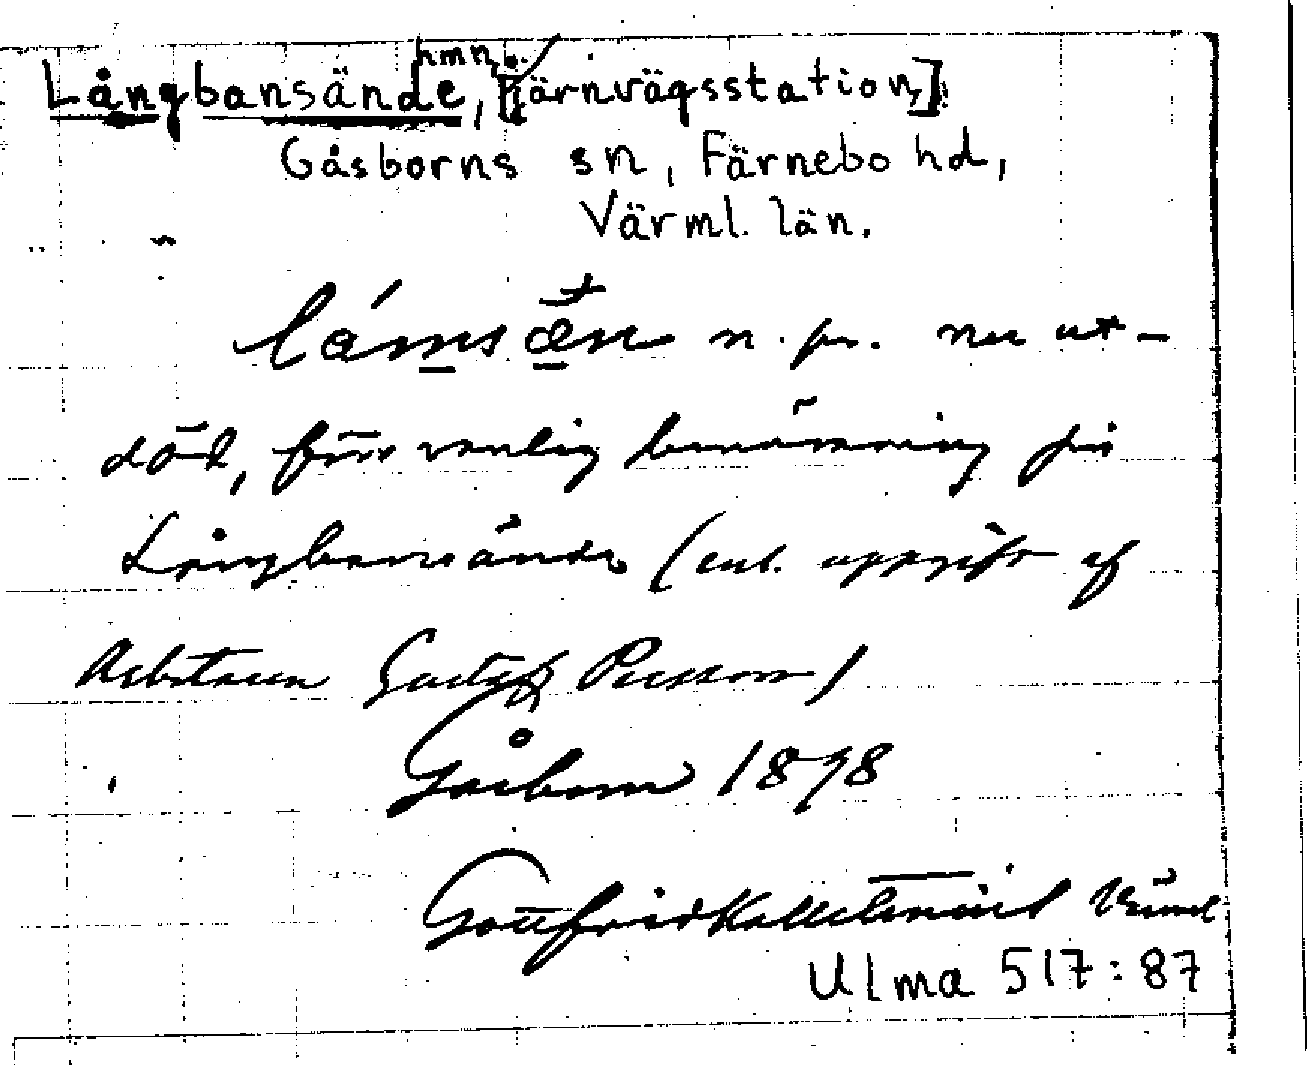 hmn,
Långbansände, [järnvägsstation,]
Gåsborns sn, Färnebo hd,
Värml. län.
lámsän n. pr. nu ut-
död, förr vanlig benämning på
Långbansände (enl. uppgift af
Arbetaren Gustaf Persson)
Gåsborn 1898
Gottfrid Kallstenius Värml
Ulma 517:87